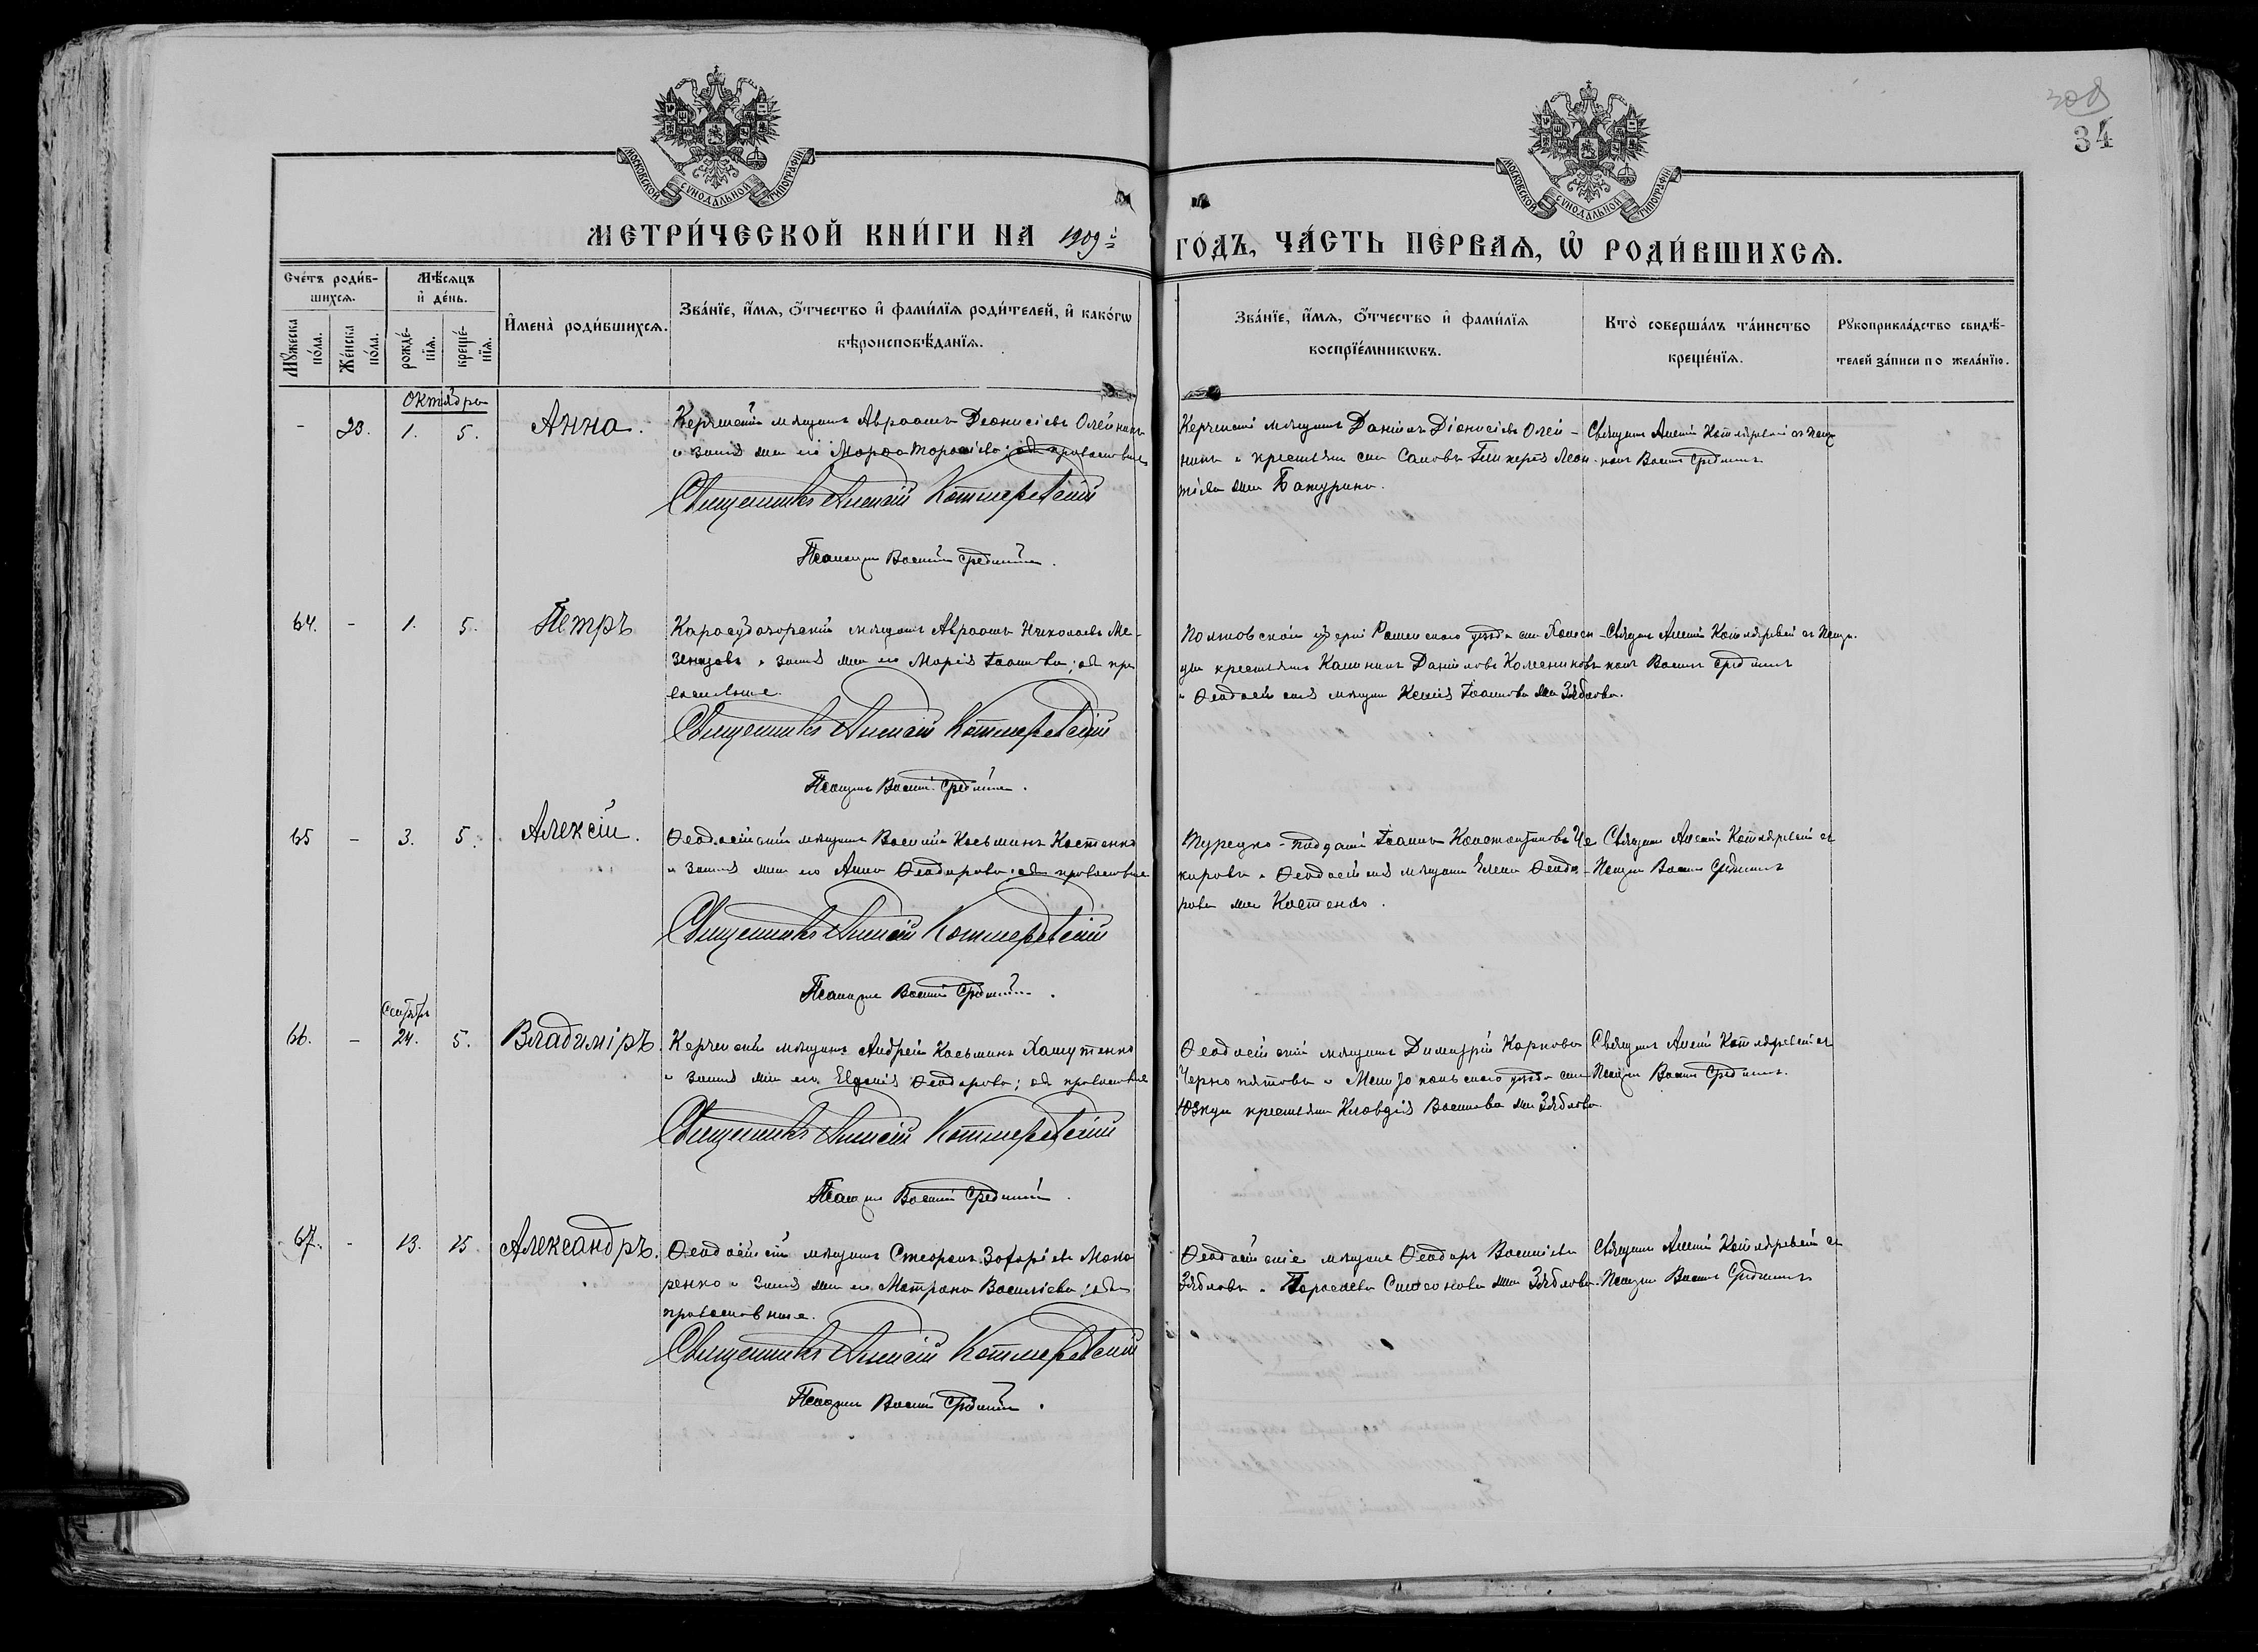 308
34
МОСКОВСКОЙ СѴНОДАЛЬНОЙ ТИПОГРАФІИ
МОСКОВСКОЙ СѴНОДАЛЬНОЙ ТИПОГРАФІИ
МЕТРИ́ЧЕСКОЙ КНИ́ГИ НА 1909й
ГО́ДЪ, ЧА́СТЬ ПЕ́РВАѦ, Ѡ҆ РОДИ́ВШИХСѦ.
Сче́тъ роди́в-
шихсѧ.
Мꙋ́жеска по́ла.
Же́нска по́ла.
Мѣ́сѧцъ
и҆ де́нь.
рожде́-
нїѧ.
креще́-
нїѧ.
И҆мена̀ роди́вшихсѧ.
Зва́нїе, и҆́мѧ, ѻ҆́тчество и҆ фами́лїѧ роди́телей, и҆ како́гѡ
вѣроисповѣ́данїѧ.
Зва́нїе, и҆́мѧ, ѻ҆́тчество и҆ фами́лїѧ
воспрїе́мникѡвъ.
Кто̀ соверша́лъ та́инство
креще́нїѧ.
Рꙋкоприкла́дство свидѣ́-
телей за́писи по жела́нїю.
Октября
- 23. 1. 5. Анна.
Керченскій мѣщанинъ Авраамъ Діонисіевъ Олейникъ
и законная жена его Марѳа Тарасіева; оба православные
Священникъ Алексій Котляревскій
Псаломщикъ Василій Срединскій.
Керченскій мѣщанинъ Даніилъ Діонисіевъ Олей-
никъ и крестьянка
тіева Батурина.
Священникъ Алексій Котляревскій съ Псалом-
64. - 1. 5. Петръ
Карасубазарскій мѣщанинъ Авраамъ Николаевъ Ме-
зенцовъ и законная жена его Марія Іоаннова; оба пра
вославные.
Священникъ Алексій Котляревскій
Псаломщикъ Василій Срединскій.
Полтавской губерніи Роменского уѣзда
крестьянинъ Калинникъ Даніиловъ Колесниковъ
и Ѳеодосійская мѣщанка Ксенія Іоаннова Зяблова.
Священникъ Алексій Котляревскій съ Псалом-
65 - 3. 5. Алексій.
Ѳеодосійскій мѣщанинъ Василій Косьминъ Костенко
и законная жена его Анна Ѳеодорова; оба православные
Священникъ Алексій Котляревскій
Псаломщикъ Василій Срединскій.
Турецко-подданный Іоаннъ Константиновъ Че
каровъ и Ѳеодосійская мѣщанка Елена Ѳеодо-
рова Костенко.
Священникъ Алексій Котляревскій съ
Псаломщикомъ Василіемъ Срединскимъ
Сентябрь
66. - 24. 5. Владиміръ.
Керченскій мѣщанинъ Андрей Косьминъ Хамутенко
и законная жена его Евгенія Ѳеодорова; оба православные
Священникъ Алексій Котляревскій
Псаломщикъ Василій Срединскій.
Ѳеодосійскій мѣщанинъ Димитрій Карповъ
Чернопятовъ и Мелитопольского уѣзда
крестьянка Клавдія Васильева Зяблова.
Священникъ Алексій Котляревскій съ
Псаломщикомъ Василіемъ Срединскимъ.
67. - 13. 15. Александръ.
Ѳеодосійскій мѣщанинъ Стефанъ Захаріевъ Мака
ренко и законная жена его Матрона Василіева; оба
православные.
Священникъ Алексій Котляревскій
Псаломщикъ Василій Срединскій.
Ѳеодосійскіе мѣщане Ѳеодоръ Василіевъ
Зябловъ и Параскева Симеонова Зяблова.
Священникъ Алексій Котляревскій съ
Псаломщикомъ Василіемъ Срединскимъ